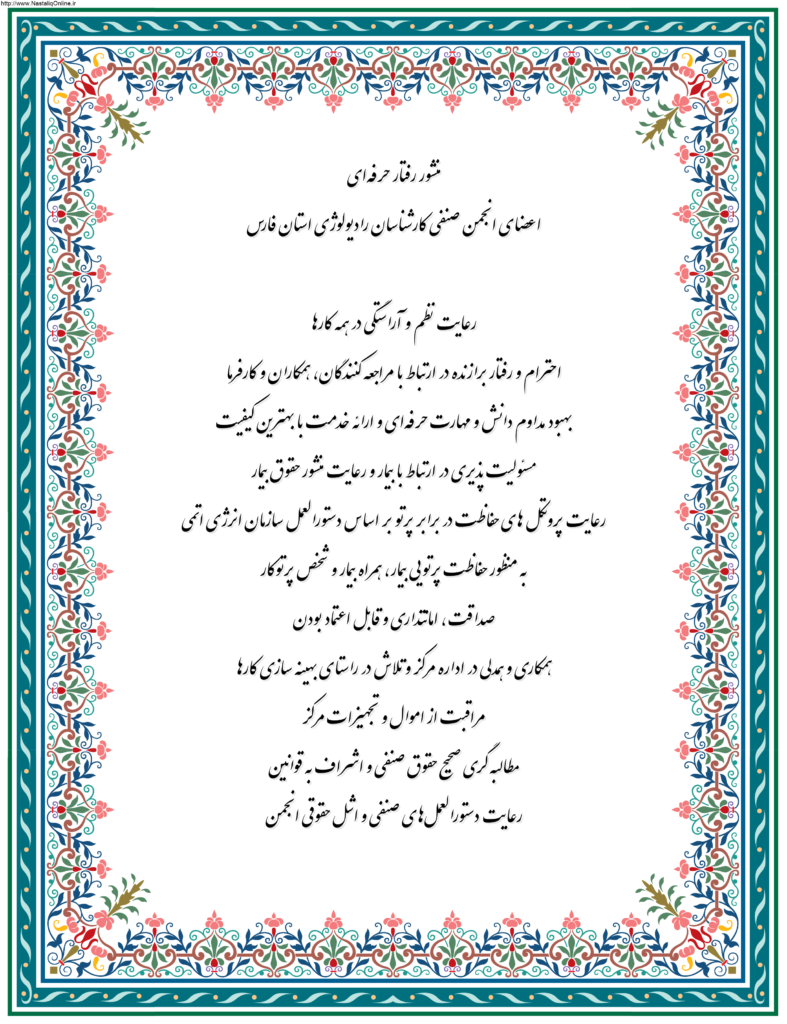 http://www.NastaliqOnline.ir
منشور رفتار حرفه‌ای
اعضای انجمن صنفی کارشناسان رادیولوژی استان فارس
رعایت نظم و آراستگی در همه کارها
احترام و رفتار برازنده در ارتباط با مراجعه کنندگان، همکاران و کارفرما
بهبود مداوم دانش و مهارت حرفه‌ای و ارائه خدمت با بهترین کیفیت
مسئولیت پذیری در ارتباط با بیمار و رعایت منشور حقوق بیمار
رعایت پروتکل های حفاظت در برابر پرتو بر اساس دستورالعمل سازمان انرژی اتمی
به منظور حفاظت پرتویی بیمار، همراه بیمار و شخص پرتوکار
صداقت، امانتداری و قابل اعتماد بودن
همکاری و همدلی در اداره مرکز و تلاش در راستای بهینه سازی کارها
مراقبت از اموال و تجهیزات مرکز
مطالبه گری صحیح حقوق صنفی و اشراف به قوانین
رعایت دستورالعمل‌های صنفی و اشل حقوقی انجمن